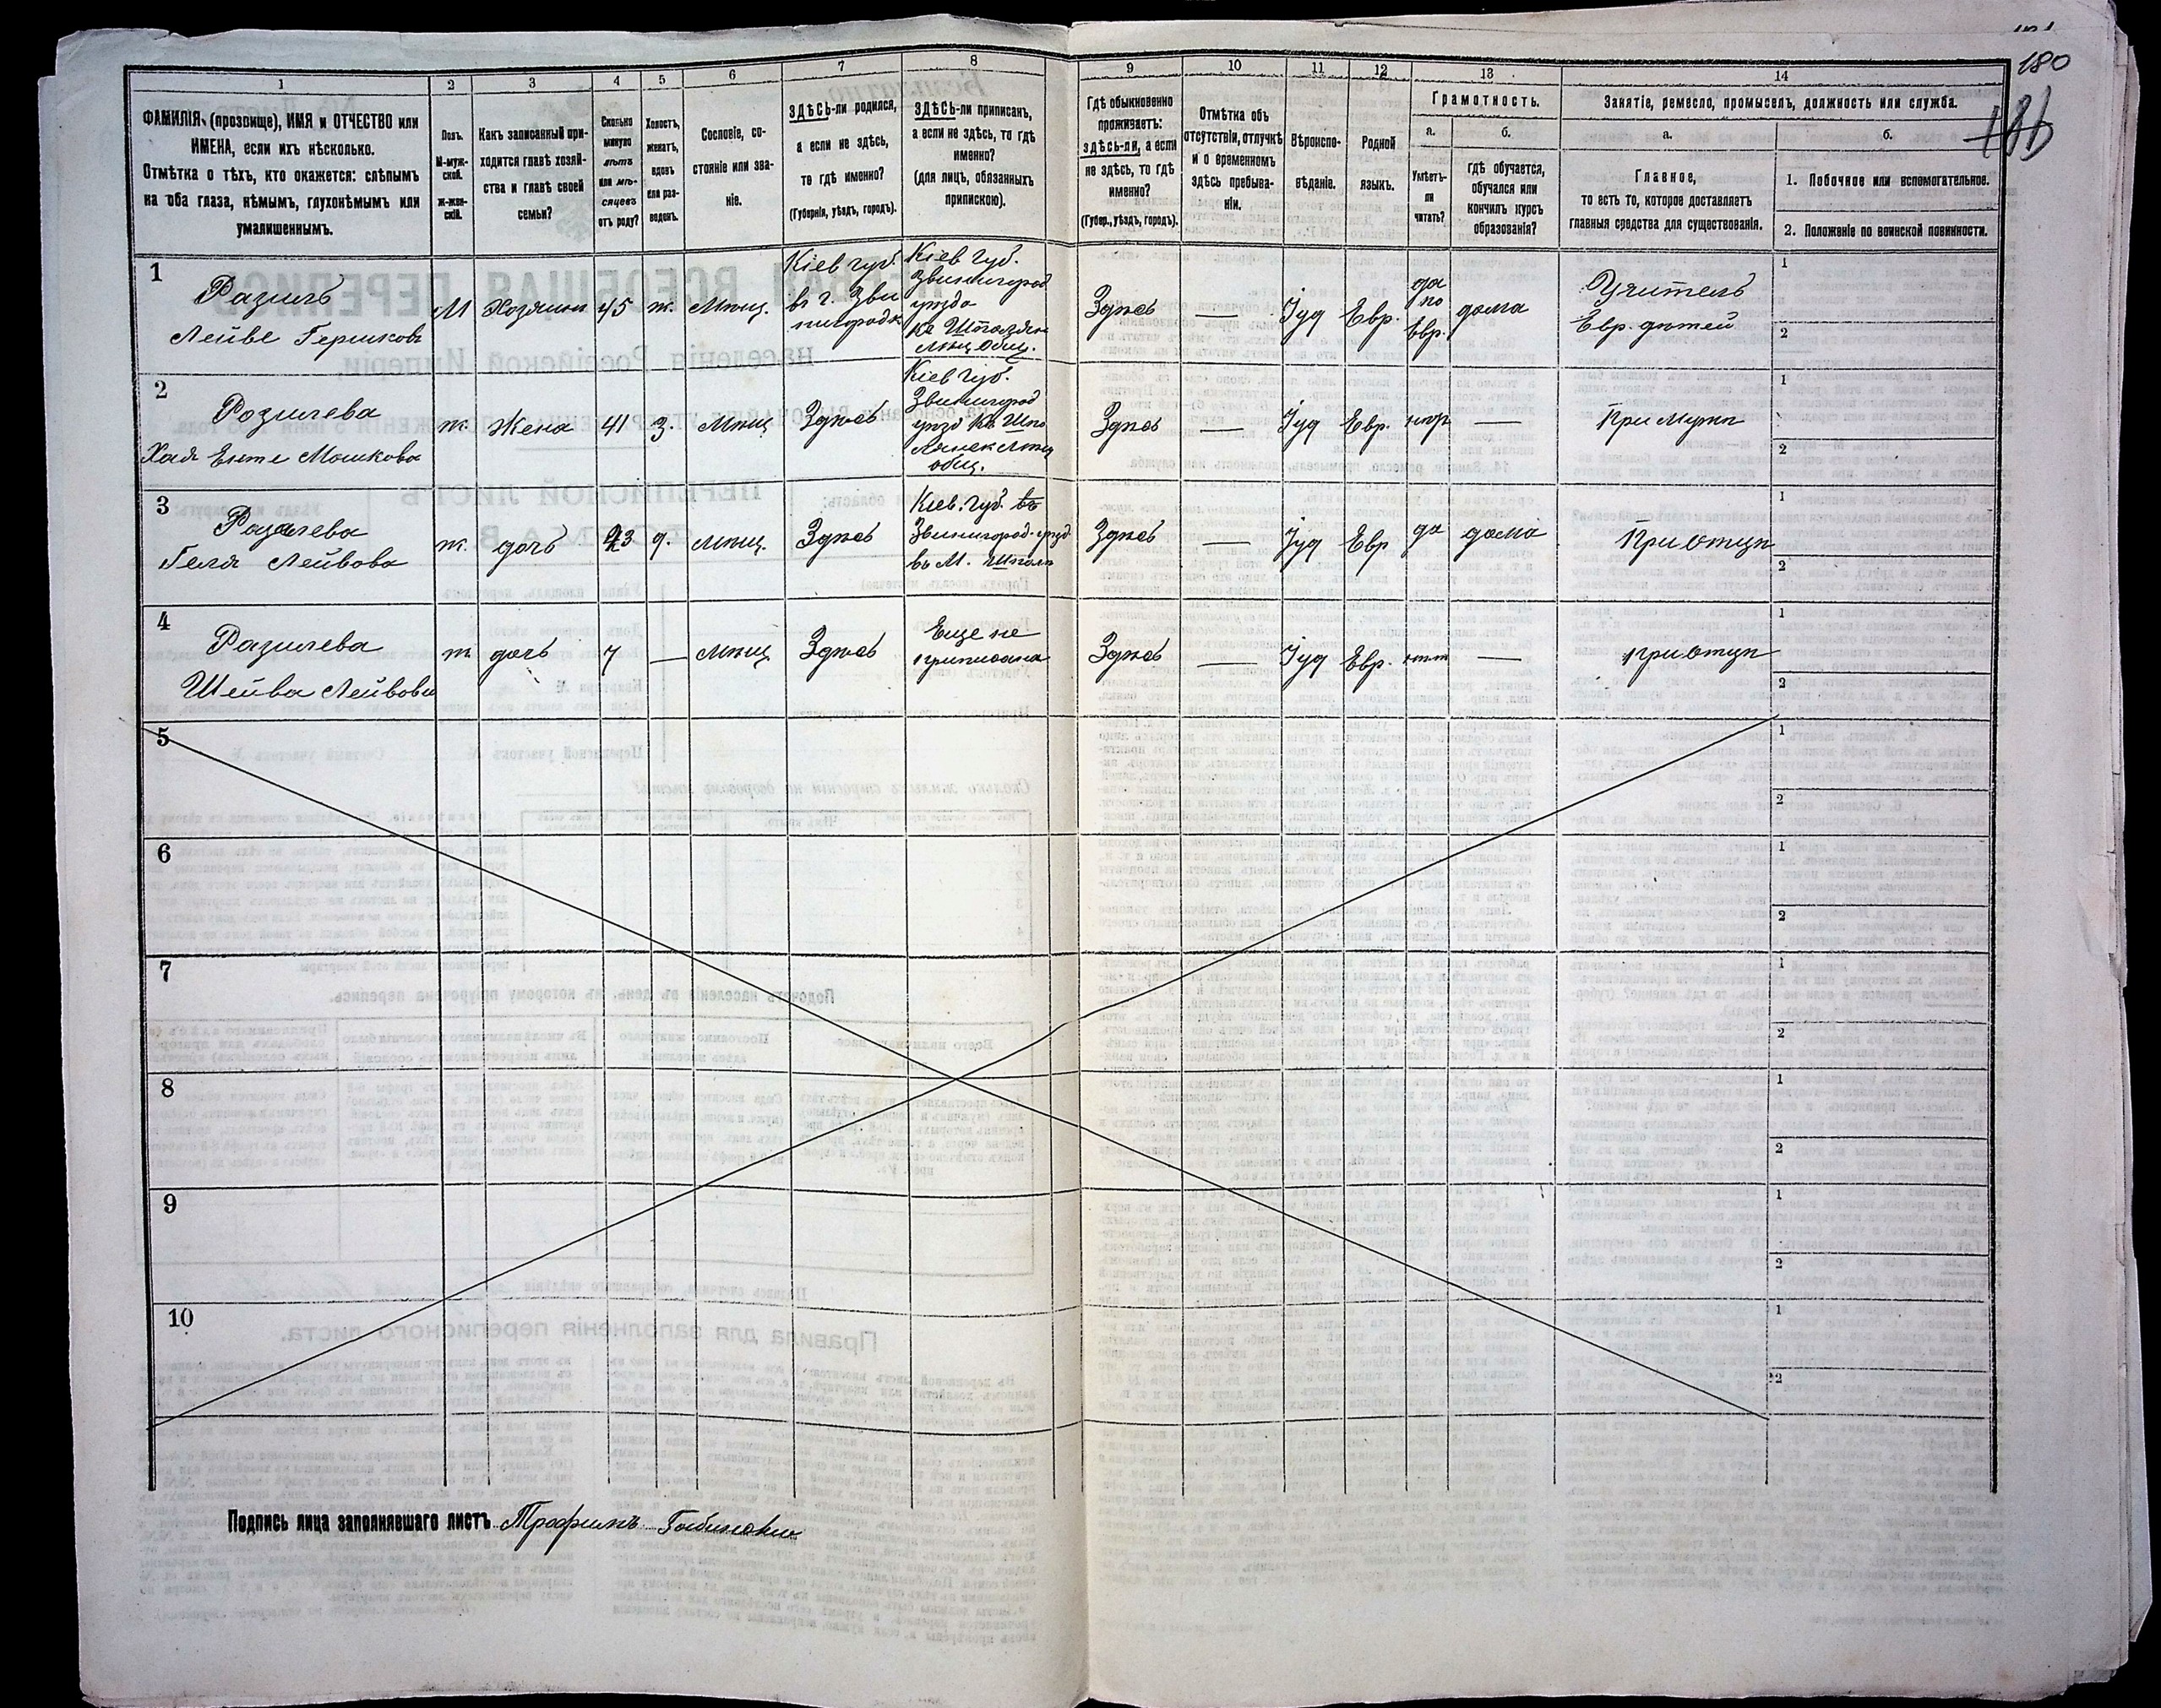 180
186
1
2
3
4
5
6
7
8
9
10
11
12
13
14
ФАМИЛІЯ, (прозвище), ИМЯ и ОТЧЕСТВО или
ИМЕНА, если ихъ нѣсколько.
Отмѣтка о тѣхъ, кто окажется: слѣпымъ
на оба глаза, нѣмымъ, глухонѣмымъ или
умалишеннымъ.
Полъ.
М-муж-
ской.
Ж-жен-
скій.
Какъ записанный при-
ходится главѣ хозяй-
ства и главѣ своей
семьи?
Сколько
минуло
лѣтъ
или мѣ-
сяцевъ
отъ роду?
Холостъ,
женатъ,
вдовъ
или раз-
веденъ.
Сословіе, со-
стояніе или зва-
ніе.
ЗДѢСЬ-ли родился,
а если не здѣсь,
то гдѣ именно?
(Губернія, уѣздъ, городъ).
ЗДѢСЬ-ли приписанъ,
а если не здѣсь, то гдѣ
именно?
(для лицъ, обязанныхъ
припискою).
Гдѣ обыкновенно
проживаетъ:
здѣсь-ли, а если
не здѣсь, то гдѣ
именно?
(Губер., уѣздъ, городъ).
Отмѣтка объ
отсутствіи, отлучкѣ
и о временномъ
здѣсь пребыва-
ніи.
Вѣроиспо-
вѣданіе.
Родной
языкъ.
Грамотность.
а.
б.
Умѣетъ-
ли
читать?
Гдѣ обучается,
обучался или
кончилъ курсъ
образованія?
Занятіе, ремесло, промыселъ, должность или служба.
а.
б.
Главное,
то есть то, которое доставляетъ
главныя средства для существованія.
1. Побочное или вспомогательное.
2. Положеніе по воинской повинности.
1
Разилъ
Лейве Гершковъ
М
Хозяинъ
45
ж.
Мѣщ.
Кіев губ
въ г. Зви
нигородк
Кіев губ.
Звинигород
уезда
Мѣщ общ.
Здѣсь
—
Іуд
Евр.
да
по
Евр.
дома
Учитель
Евр. дѣтей
1
2
2
Розилева
Хая Енте Мошкова
ж.
Жена
41
З.
Мѣщ
Здѣсь
Кіев губ.
Звинигород
уезд къ Шпо
лянск Мѣщ
общ.
Здѣсь
—
Іуд
Евр.
нѣт
—
При Мужѣ
1
2
3
Разилева
Геля Лейвова
ж.
дочь
23
д.
Мѣщ.
Здѣсь
Кіев. Губ. въ
Звинигород. уезд
въ М. Шполѣ
Здѣсь
—
Іуд
Евр
да
дома
При отцѣ
1
2
4
Разилева
Шейва Лейвова
ж
дочь
7
—
Мѣщ
Здѣсь
Еще не
приписана
Здѣсь
—
Іуд
Евр.
нѣт
—
при отцѣ
1
2
5
1
2
6
1
2
7
1
2
8
1
2
9
1
2
10
1
2
Подпись лица заполнявшаго листъ Трофимъ